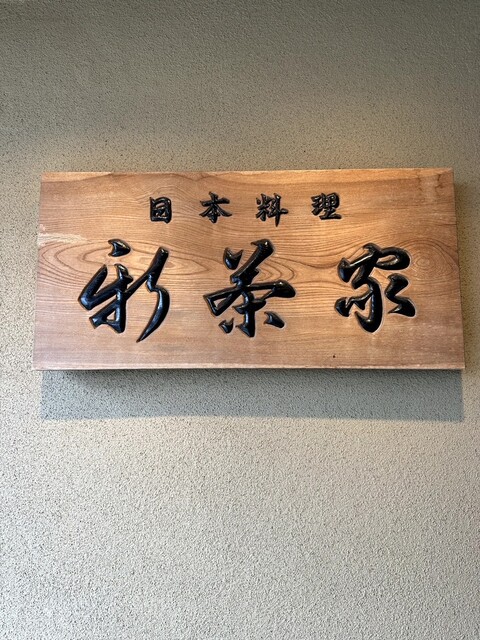 日本料理
新茶家